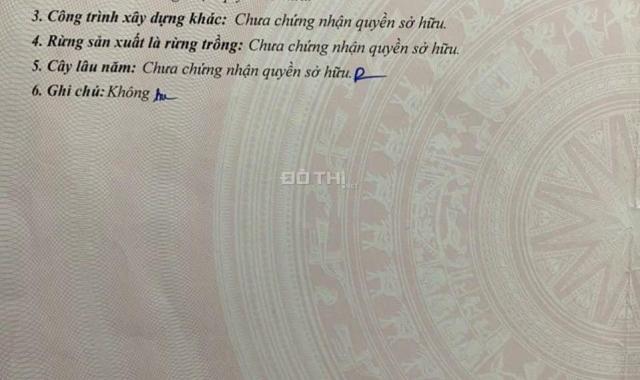 3. Công trình xây dựng khác: Chưa chứng nhận quyền sở hữu.
4. Rừng sản xuất là rừng trồng: Chưa chứng nhận quyền sở hữu.
5. Cây lâu năm: Chưa chứng nhận quyền sở hữu.
6. Ghi chú: Không
ĐÔ THỊ